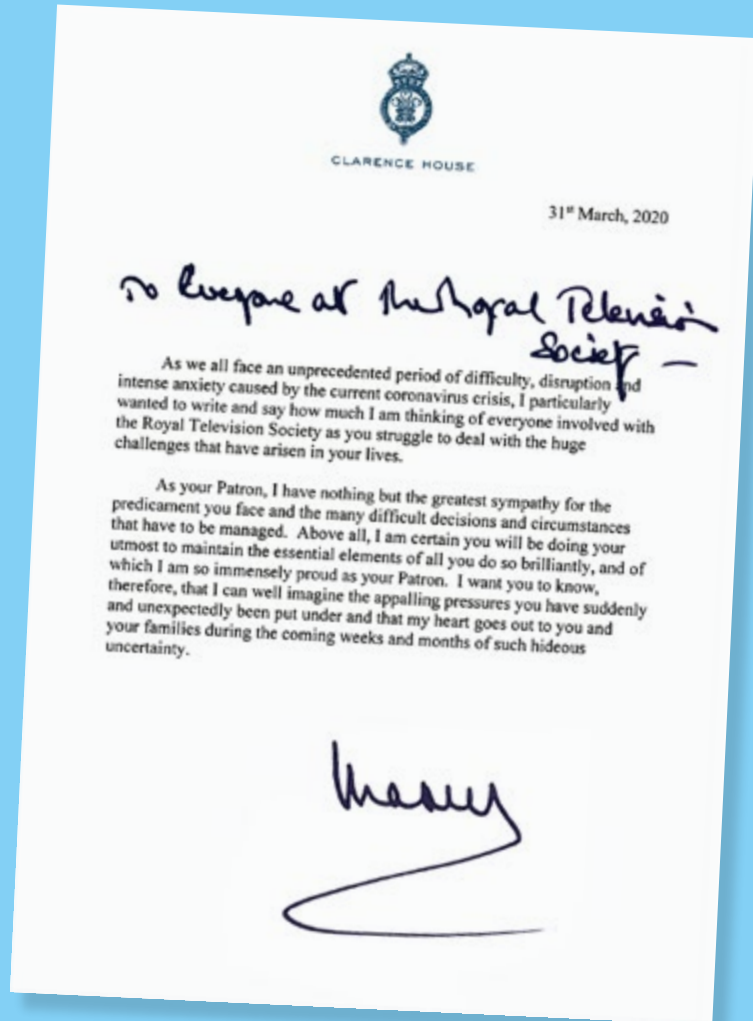 CLARENCE HOUSE
31st March, 2020
To Everyone at the Royal Television
Society —
As we all face an unprecedented period of difficulty, disruption and
intense anxiety caused by the current coronavirus crisis, I particularly
wanted to write and say how much I am thinking of everyone involved with
the Royal Television Society as you struggle to deal with the huge
challenges that have arisen in your lives.
As your Patron, I have nothing but the greatest sympathy for the
predicament you face and the many difficult decisions and circumstances
that have to be managed. Above all, I am certain you will be doing your
utmost to maintain the essential elements of all you do so brilliantly, and of
which I am so immensely proud as your Patron. I want you to know,
therefore, that I can well imagine the appalling pressures you have suddenly
and unexpectedly been put under and that my heart goes out to you and
your families during the coming weeks and months of such hideous
uncertainty.